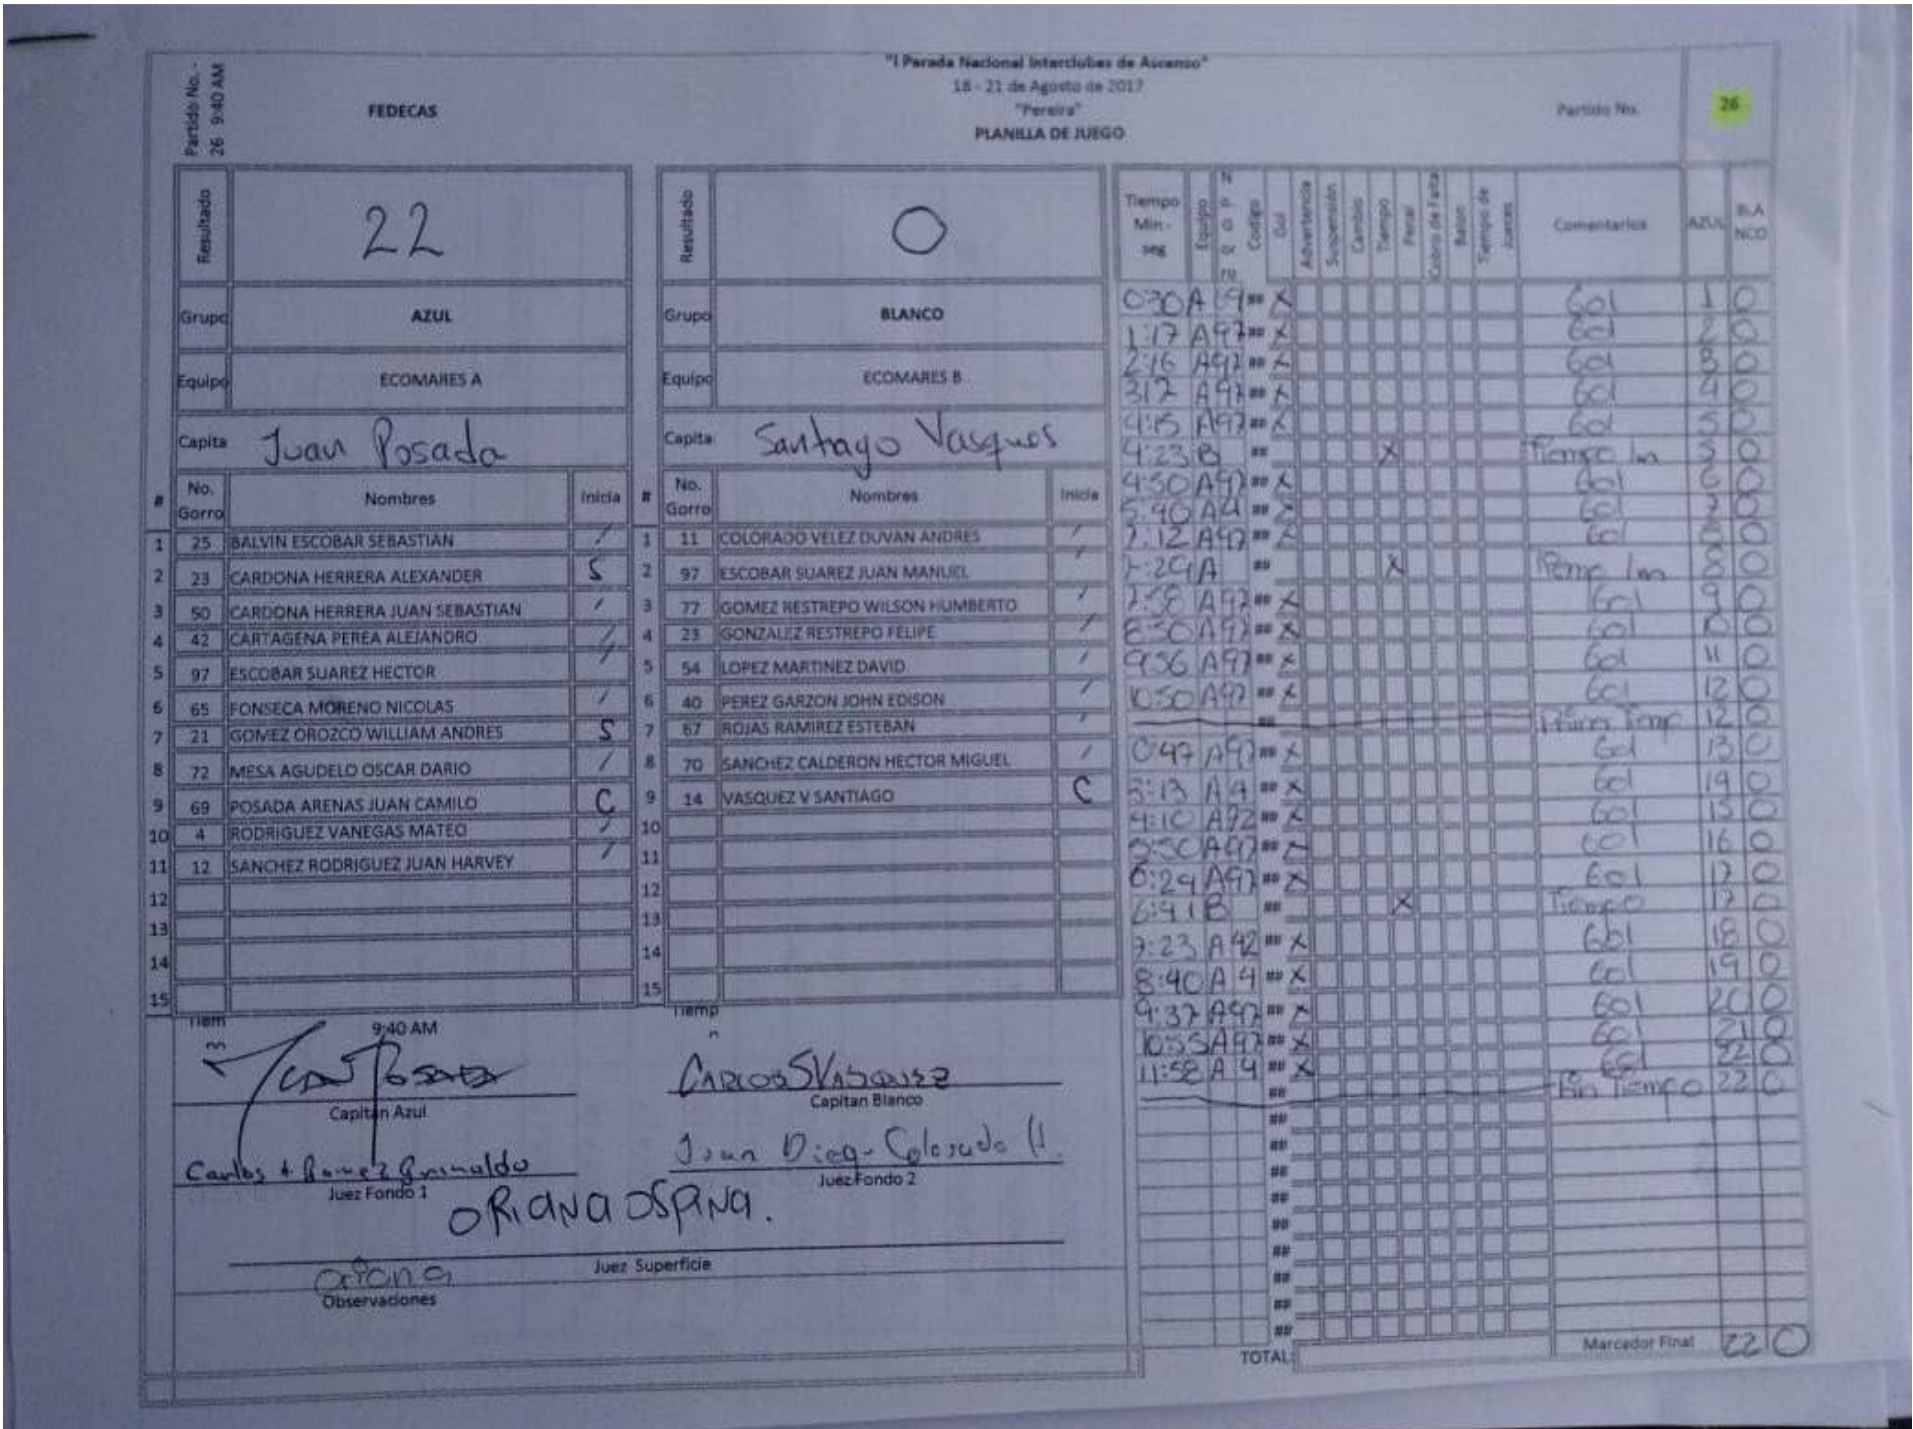 Partido No. -
26 9:40 AM
FEDECAS
"I Parada Nacional Interclubes de Ascenso"
18 - 21 de Agosto de 2017
"Pereira"
PLANILLA DE JUEGO
Partido No. 26
Resultado 22
Resultado 0
Grupo AZUL
Grupo BLANCO
Equipo ECOMARES A
Equipo ECOMARES B
Capita Juan Posada
Capita Santiago Vasques
# No. Gorro Nombres Inicia
1 25 BALVIN ESCOBAR SEBASTIAN /
2 23 CARDONA HERRERA ALEXANDER S
3 50 CARDONA HERRERA JUAN SEBASTIAN /
4 42 CARTAGENA PEREA ALEJANDRO /
5 97 ESCOBAR SUAREZ HECTOR /
6 65 FONSECA MORENO NICOLAS /
7 21 GOMEZ OROZCO WILLIAM ANDRES S
8 72 MESA AGUDELO OSCAR DARIO /
9 69 POSADA ARENAS JUAN CAMILO C
10 4 RODRIGUEZ VANEGAS MATEO /
11 12 SANCHEZ RODRIGUEZ JUAN HARVEY /
12
13
14
15
# No. Gorro Nombres Inicia
1 11 COLORADO VELEZ DUVAN ANDRES /
2 97 ESCOBAR SUAREZ JUAN MANUEL /
3 77 GOMEZ RESTREPO WILSON HUMBERTO /
4 23 GONZALEZ RESTREPO FELIPE /
5 54 LOPEZ MARTINEZ DAVID /
6 40 PEREZ GARZON JOHN EDISON /
7 67 ROJAS RAMIREZ ESTEBAN /
8 70 SANCHEZ CALDERON HECTOR MIGUEL /
9 14 VASQUEZ V SANTIAGO C
10
11
12
13
14
15
Tiem
9:40 AM
Tiemp
Juan Posada
Capitan Azul
Carlos S Vasquez
Capitan Blanco
Carlos A Gomez Grimaldo
Juez Fondo 1
Juan Diego Colorado
Juez Fondo 2
ORIANA OSPINA.
Juez Superficie
oriana
Observaciones
Tiempo Min - seg Equipo Codigo Gol Advertencia Suspensión Cambio Tiempo Penal Cobro de Falta Balon Tiempo de Jueces Comentarios AZUL BLANCO
A ## X Gol 1 0
1:17 A 97 ## X Gol 2 0
2:16 A 97 ## X Gol 3 0
A 97 ## X Gol 4 0
4:15 A 97 ## X Gol 5 0
4:23 B ## X Tiempo 5 0
4:50 A 97 ## X Gol 6 0
5:40 A 4 ## X Gol 7 0
7:12 A 97 ## X Gol 8 0
A ## X 8 0
7:58 A 97 ## X Gol 9 0
8:50 A 97 ## X Gol 10 0
9:56 A 97 ## X Gol 11 0
10:50 A 97 ## X Gol 12 0
## 12 0
0:47 A 97 ## X Gol 13 0
3:13 A 4 ## X Gol 14 0
4:10 A ## X Gol 15 0
5:50 A 97 ## X Gol 16 0
6:29 A 97 ## X Gol 17 0
6:41 B ## X Tiempo 17 0
7:23 A 42 ## X Gol 18 0
8:40 A 4 ## X Gol 19 0
9:37 A 97 ## X Gol 20 0
10:55 A 97 ## X Gol 21 0
11:58 A 4 ## X Gol 22 0
## Fin Tiempo 22 0
##
##
##
##
##
##
##
##
##
Marcador Final 22 0
TOTAL: